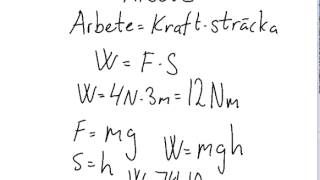 Arbete = Kraft·sträcka
W = F·S
W = 4N·3m = 12Nm
F = mg
W = mgh
S = h